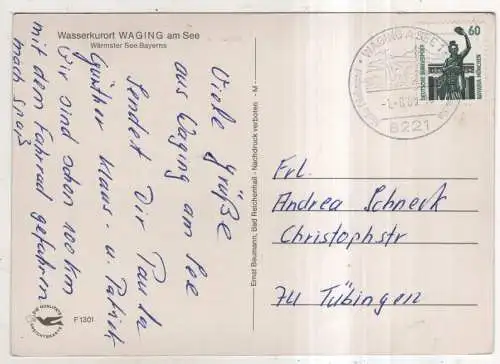 Wasserkurort WAGING am See
Wärmster See Bayerns
Viele Grüße
aus Waging am See
Sendet Dir Paula
Günther Klaus - u. Patrick
Wir sind schon 100 Km
mit dem Fahrrad gefahren
mach Spaß
F 1301
Ernst Baumann, Bad Reichenhall - Nachdruck verboten - M -
WAGING A SEE 1
8221
60
DEUTSCHE BUNDESPOST
BAVARIA MÜNCHEN
Frl.
Andrea Schneck
Christophstr
74 Tübingen